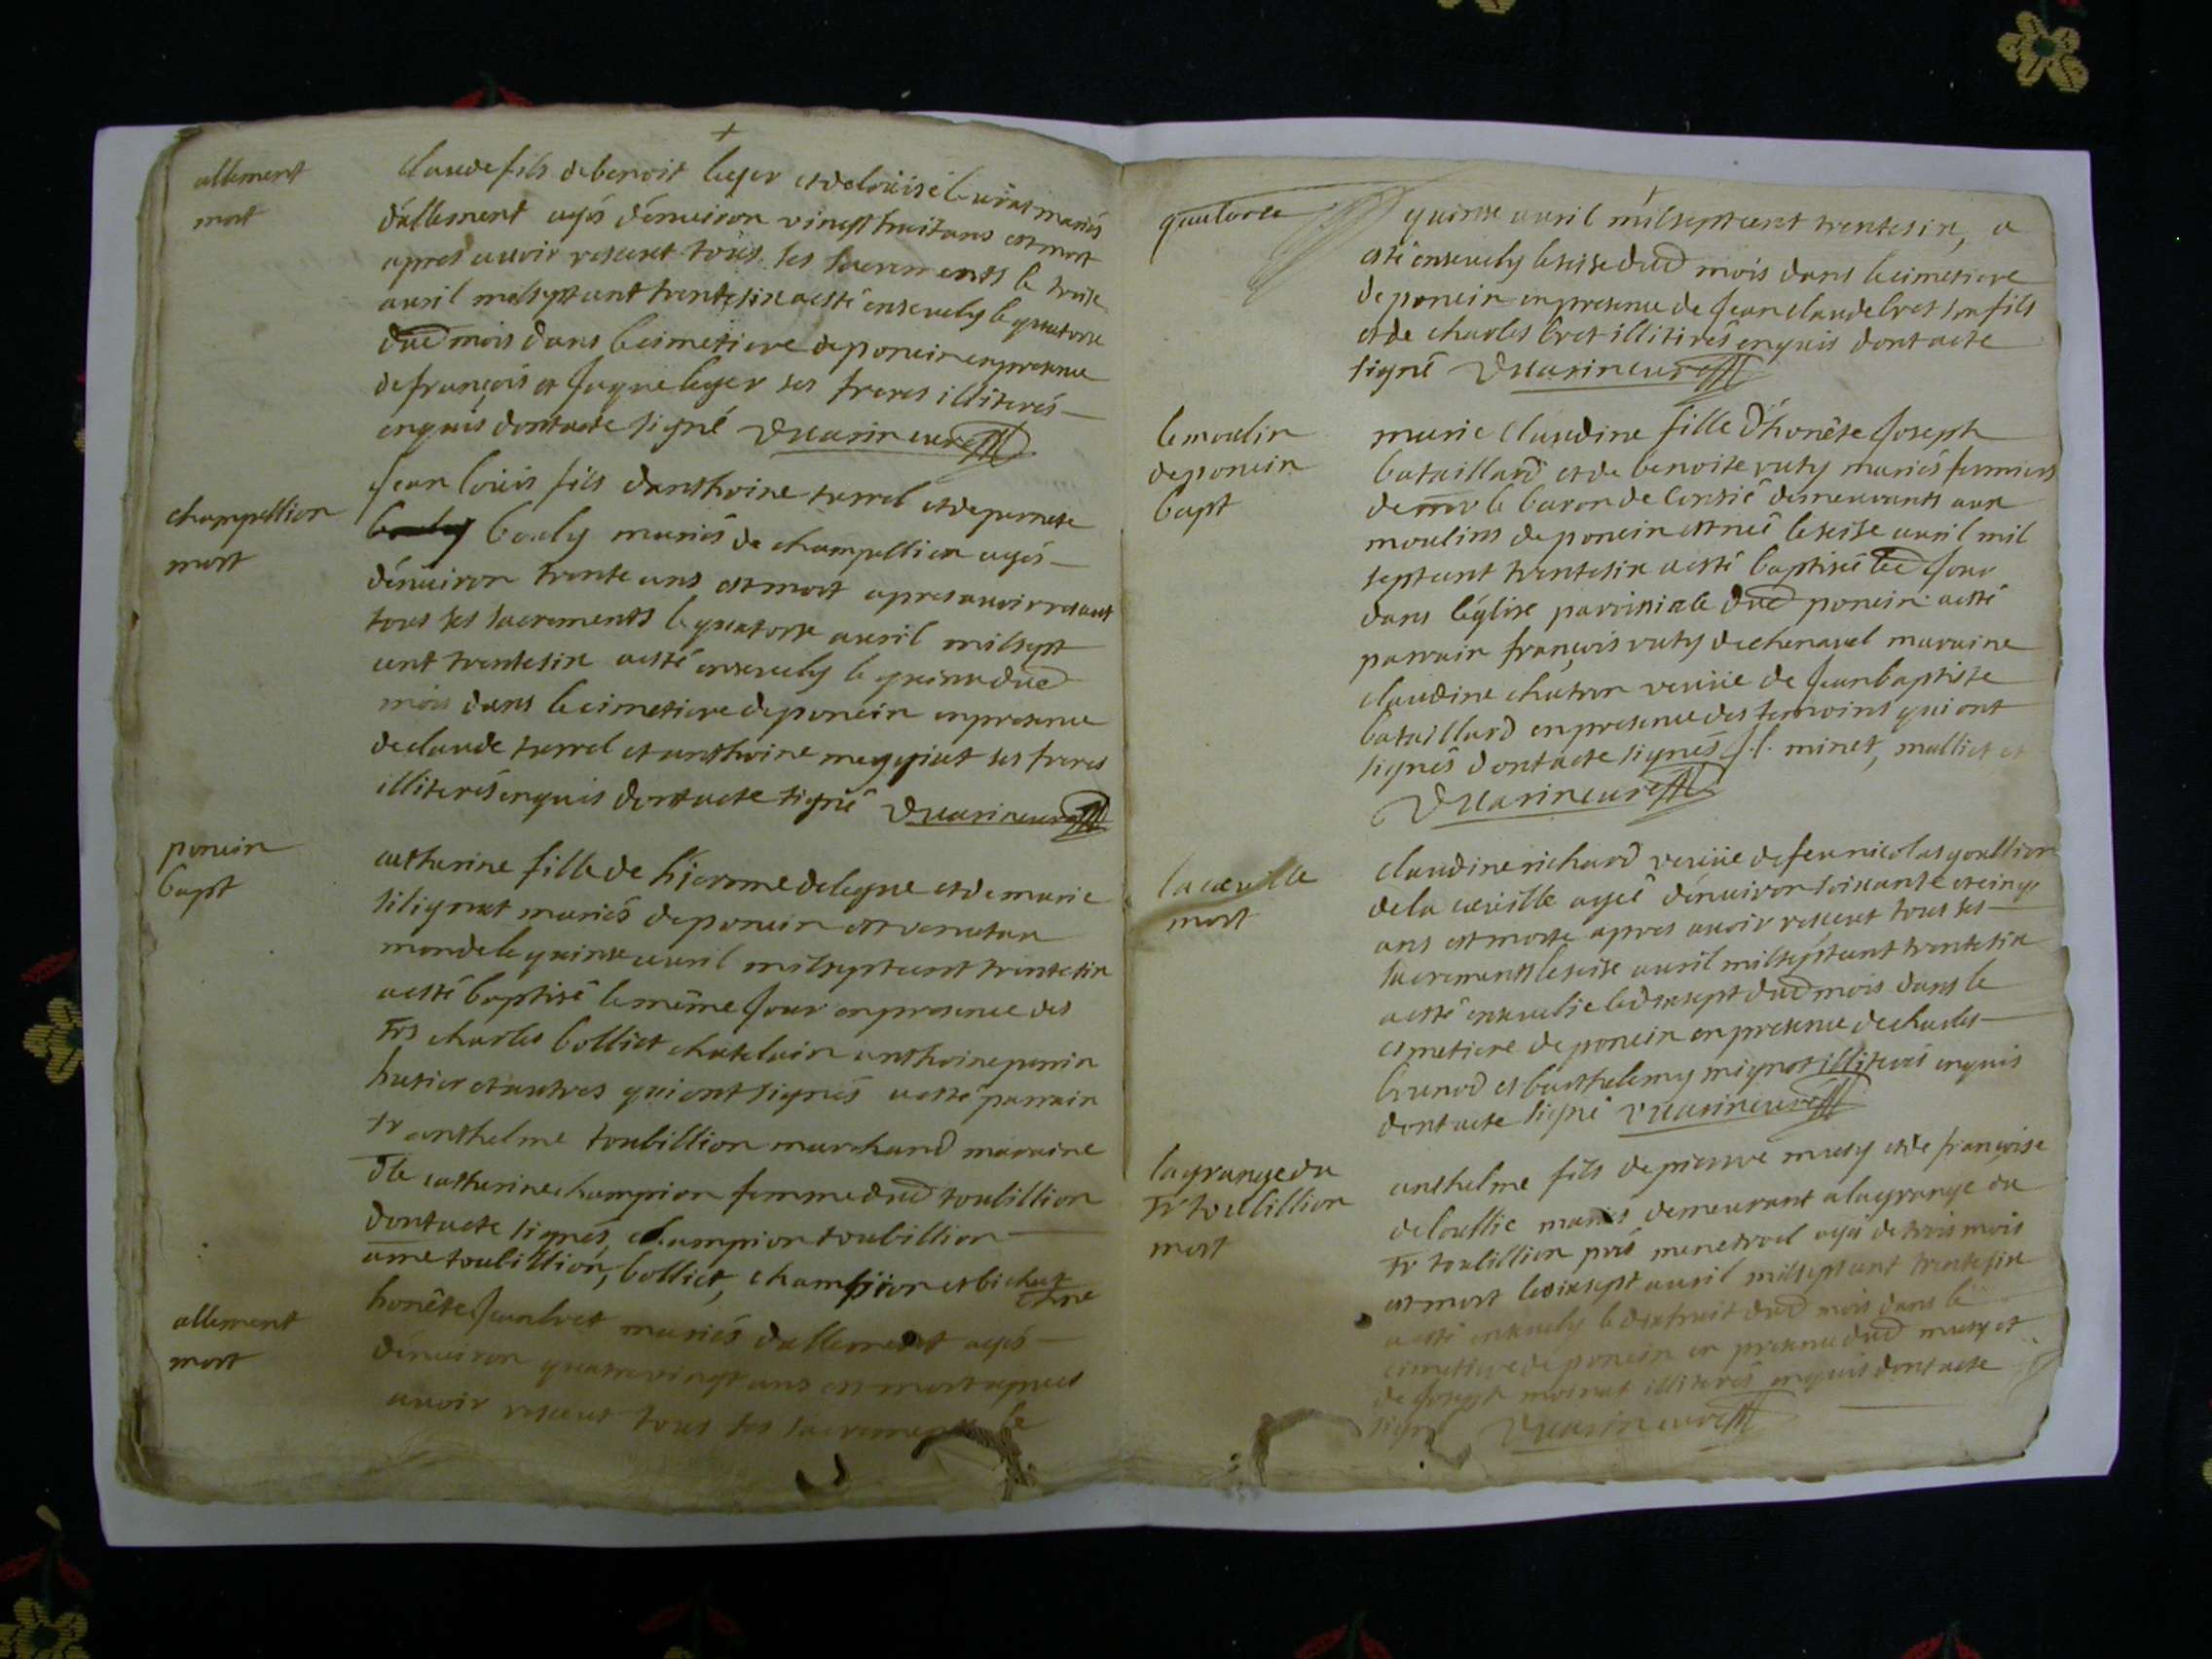 allement
mort
claude fils de benoit leger et de loüise leurat mariés
d'allement agés d'énuiron vingtt huit ans est mort
apres auoir resceut tous ses sacrements le treise
auril mil sept cent trente six a esté enseuely le quatorse
dud mois dans le cimetiere de poncin en presence
de françois et Jaque leger ses freres illiterés
enquis dont acte signé
champellion
mort
Jean loüis fils danthoine tarrel et de pernete
bouly mariés de champellion agés
d'énuiron trente ans est mort apres auoir resceut
tous ses sacrements le quatorse auril mil sept
cent trente six a esté enseuely le quinse dud
mois dans le cimetiere de poncin en presence
de claude tarrel et anthoine meygniat ses freres
illiterés enquis dont acte signé
poncin
bapt
catherine fille de hjerome delegue et de marie
silignat mariés de poncin est venue au
monde le quinse auril mil sept cent trente six
a esté baptisé le même Jour en presence des
srs charles bolliet chatelain anthoine perrin
husier et autres qui ont signés a esté parrain
sr anthelme toubillion marchand maraine
dlle catherine champion femme dud toubillion
dont acte signés, champion toubillion
ame toubillion, bolliet, champion et bichat
allement
mort
honête Jean bret mariés d'allement agés
d'énuiron quatre vingt ans est mort apres
auoir resceut tous ses sacrements le
quatorse
quinse auril mil sept cent trente six, a
esté enseuely le seise dud mois dans le cimetiere
de poncin en presence de Jean claude bret son fils
et de charles bret illiterés enquis dont acte
signé
le moulin
de poncin
bapt
marie claudine fille d'honête Joseph
bataillard et de benoite ruty mariés fermiers
de mr le baron de Consié demeurants aux
moulins de poncin est neé le seise auril mil
sept cent trente six a esté baptiseé led Jour
dans l'église parroissiale dud poncin a esté
parrain françois ruty de chenauel maraine
claudine chatron veuüe de Jean baptiste
bataillard en presence des temoins qui ont
signés dont acte signés J. l. minet, malliet et
la cueille
mort
claudine richard veuüe de feu nicolas goullion
de la cueille ageé d'énuiron soixante et cinq
ans est morte apres auoir resceut tous ses
sacrements le seise auril mil sept cent trente six
a esté enseuelie le dixsept dud mois dans le
cimetiere de poncin en presence de charles
brunod et barthelemy mignot illiterés enquis
dont acte signé
la grange du
sr toubillion
mort
anthelme fils de pierre musy et de françoise
deloullie mariés demeurant a la grange du
sr toubillion prés menetruel agé de trois mois
est mort le dixsept auril mil sept cent trente six
a esté enseuely le dixhuit dud mois dans le
cimetiere de poncin en presence dud musy et
de Joseph illiterés enquis dont acte
signé